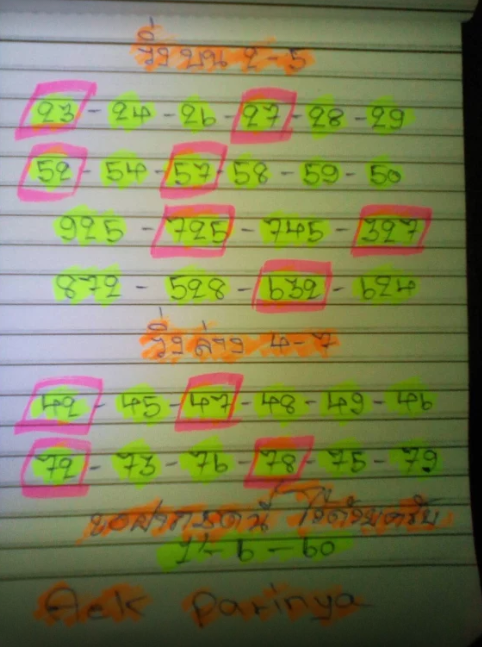 วิ่งบน 2-5
23-24-26-27-28-29
52-54-57-58-59-50
925-725-745-327
872-528-632-624
วิ่งล่าง 4-7
42-45-47-48-49-46
72-73-76-78-75-79
ขอฝากชุดนี้ ไว้ด้วยครับ
-6-60
Aek Parinya